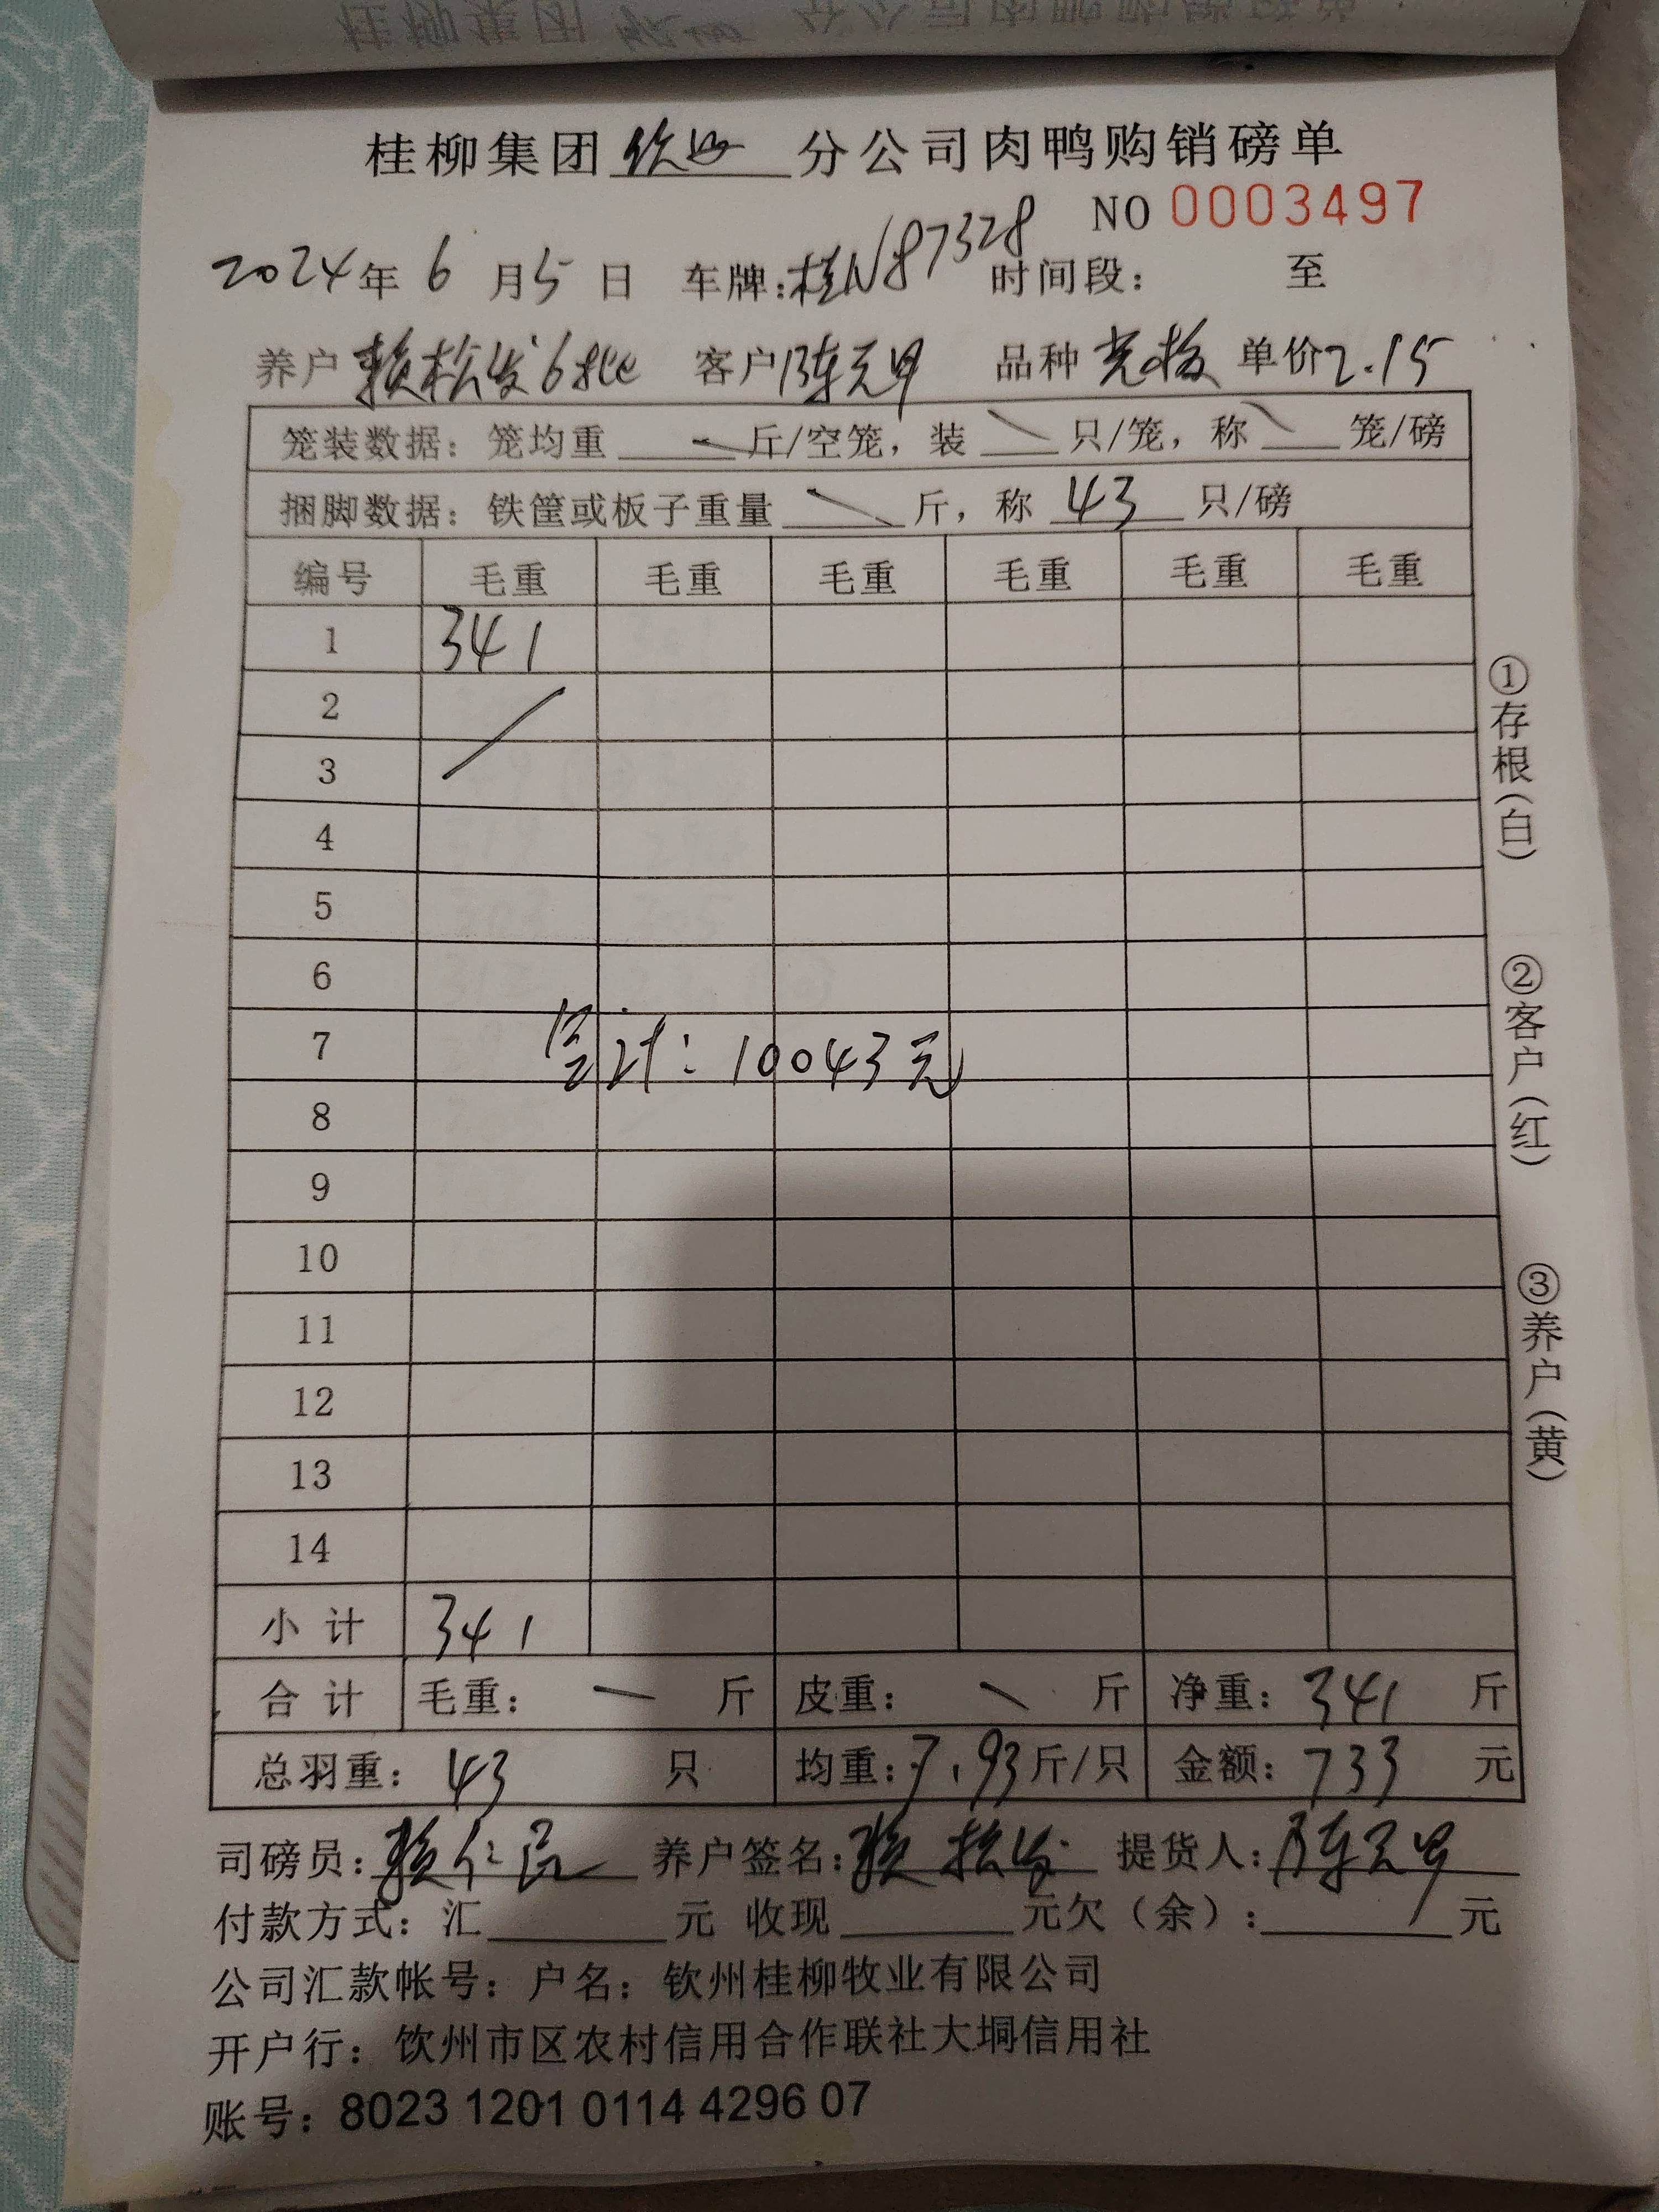 桂柳集团钦州分公司肉鸭购销磅单
NO 0003497
2024年6月5日 车牌:桂N87328 时间段: 至
养户 赖松发6批 客户 陈元甲 品种 单价2.15
笼装数据:笼均重 斤/空笼,装 只/笼,称 笼/磅
捆脚数据:铁筐或板子重量 斤,称 43 只/磅
编号 毛重 毛重 毛重 毛重 毛重 毛重
1 341
2
3
4
5
6
7
总计:10043元
8
9
10
11
12
13
14
小计 341
合计 毛重: 一 斤 皮重: 斤 净重:341 斤
总羽重:43 只 均重:7.93斤/只 金额:733 元
司磅员:赖仁 养户签名:赖松发 提货人:陈元甲
付款方式:汇 元 收现 元欠(余): 元
公司汇款帐号:户名:钦州桂柳牧业有限公司
开户行:钦州市区农村信用合作联社大垌信用社
账号:8023 1201 0114 4296 07
①存根(白)
②客户(红)
③养户(黄)